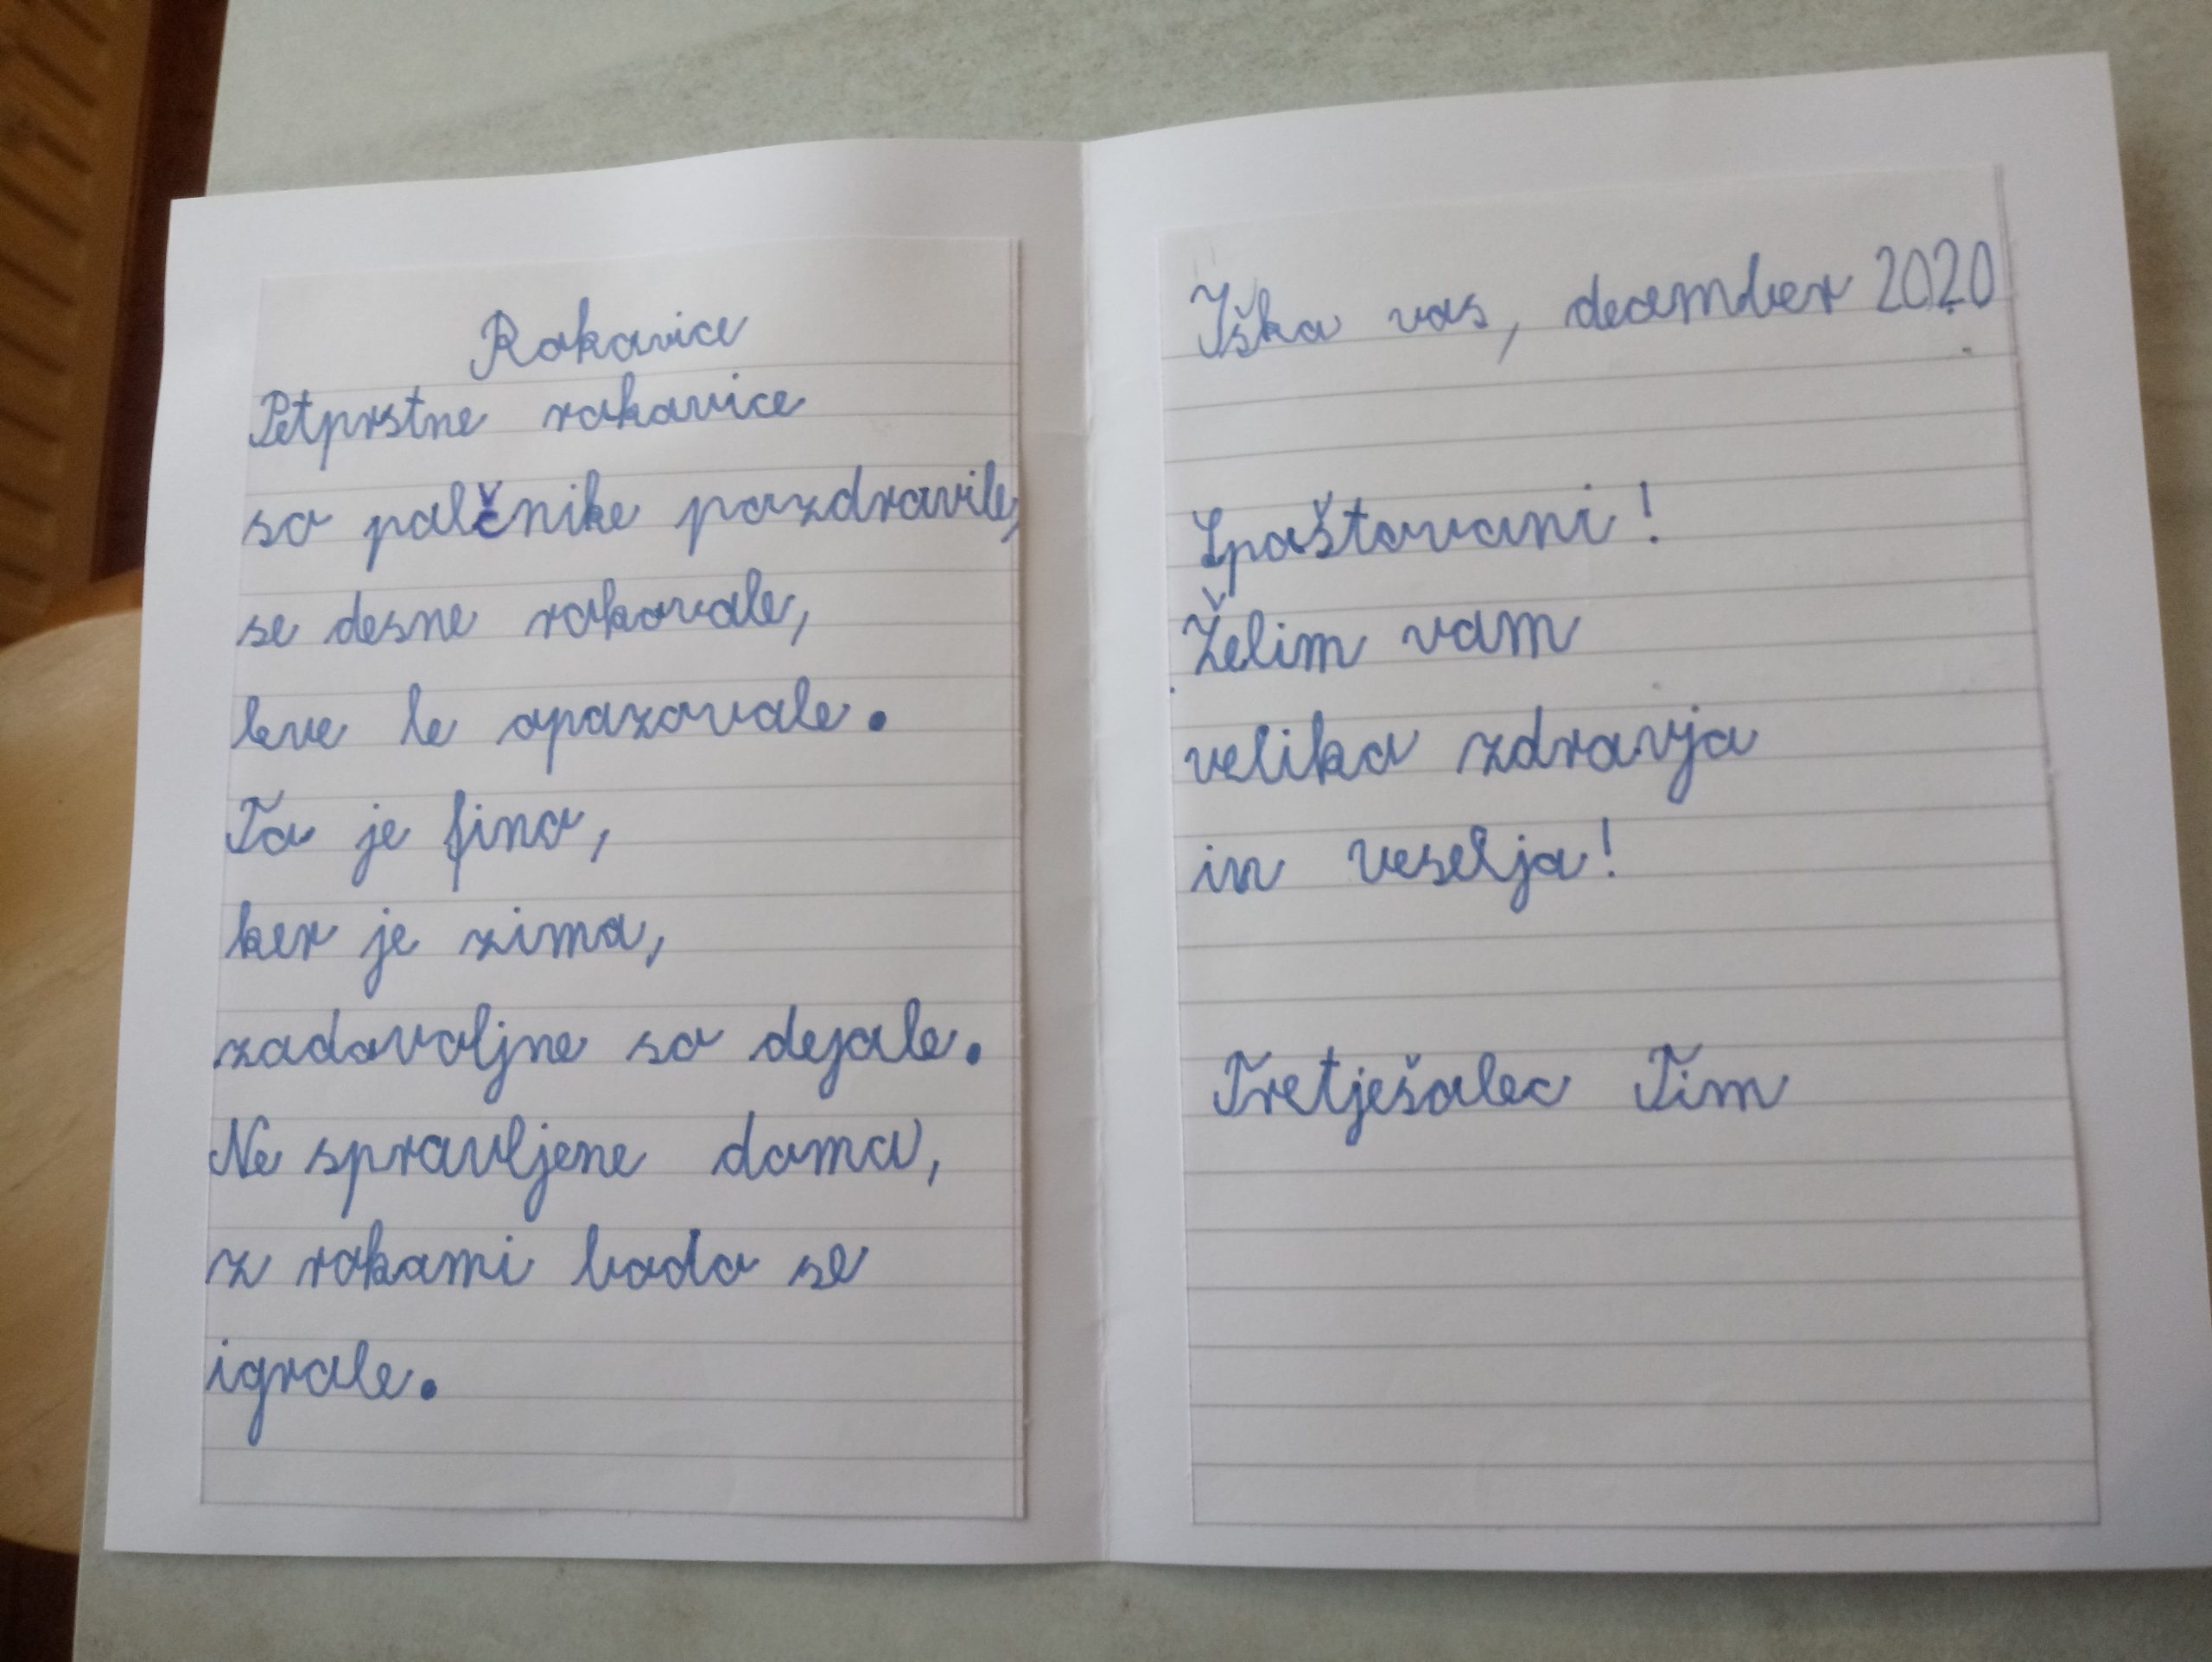 Rokavice
Petprstne rokavice
so palčnike pozdravile,
se desne rokovale,
leve le opazovale.
To je fino,
ker je zima,
zadovoljne so dejale.
Ne spravljene doma,
z rokami bodo se
igrale.
Iška vas, december 2020
Spoštovani!
Želim vam
veliko zdravja
in veselja!
Tretješolec Tim